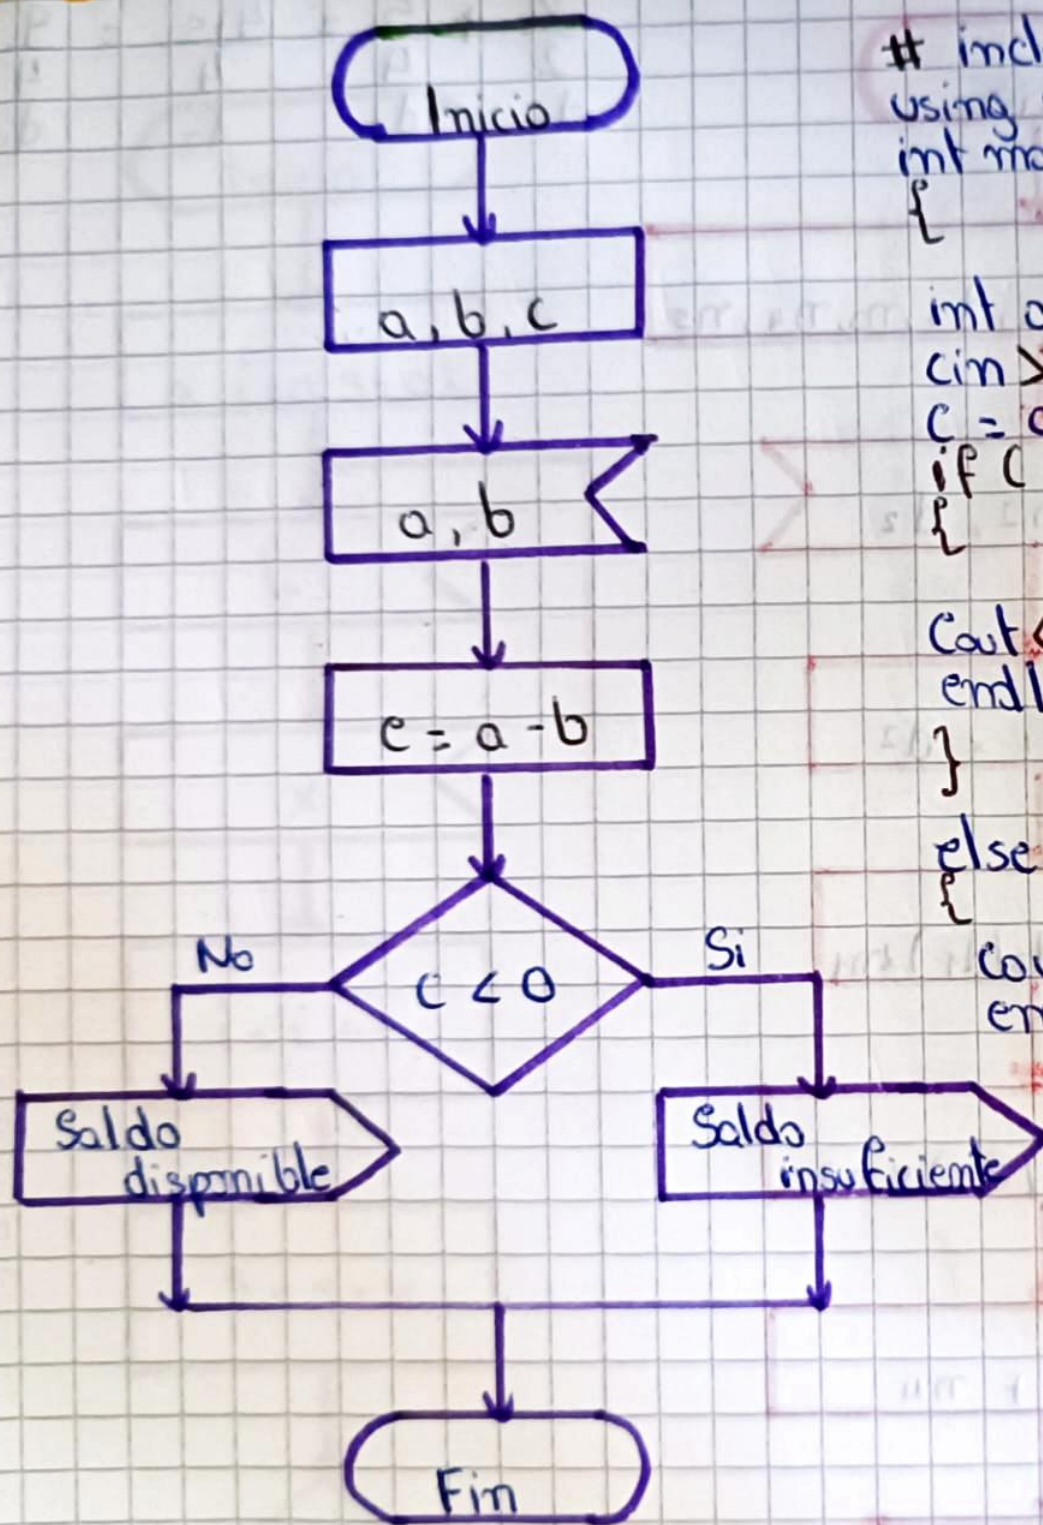 Inicio
a, b, c
a, b
c = a - b
c < 0
No
Si
Saldo
disponible
Saldo
insuficiente
Fin
# incl
using
int ma
{
int a
cin >
c =
if (
{
Cout <
endl
}
else
{
cou
en